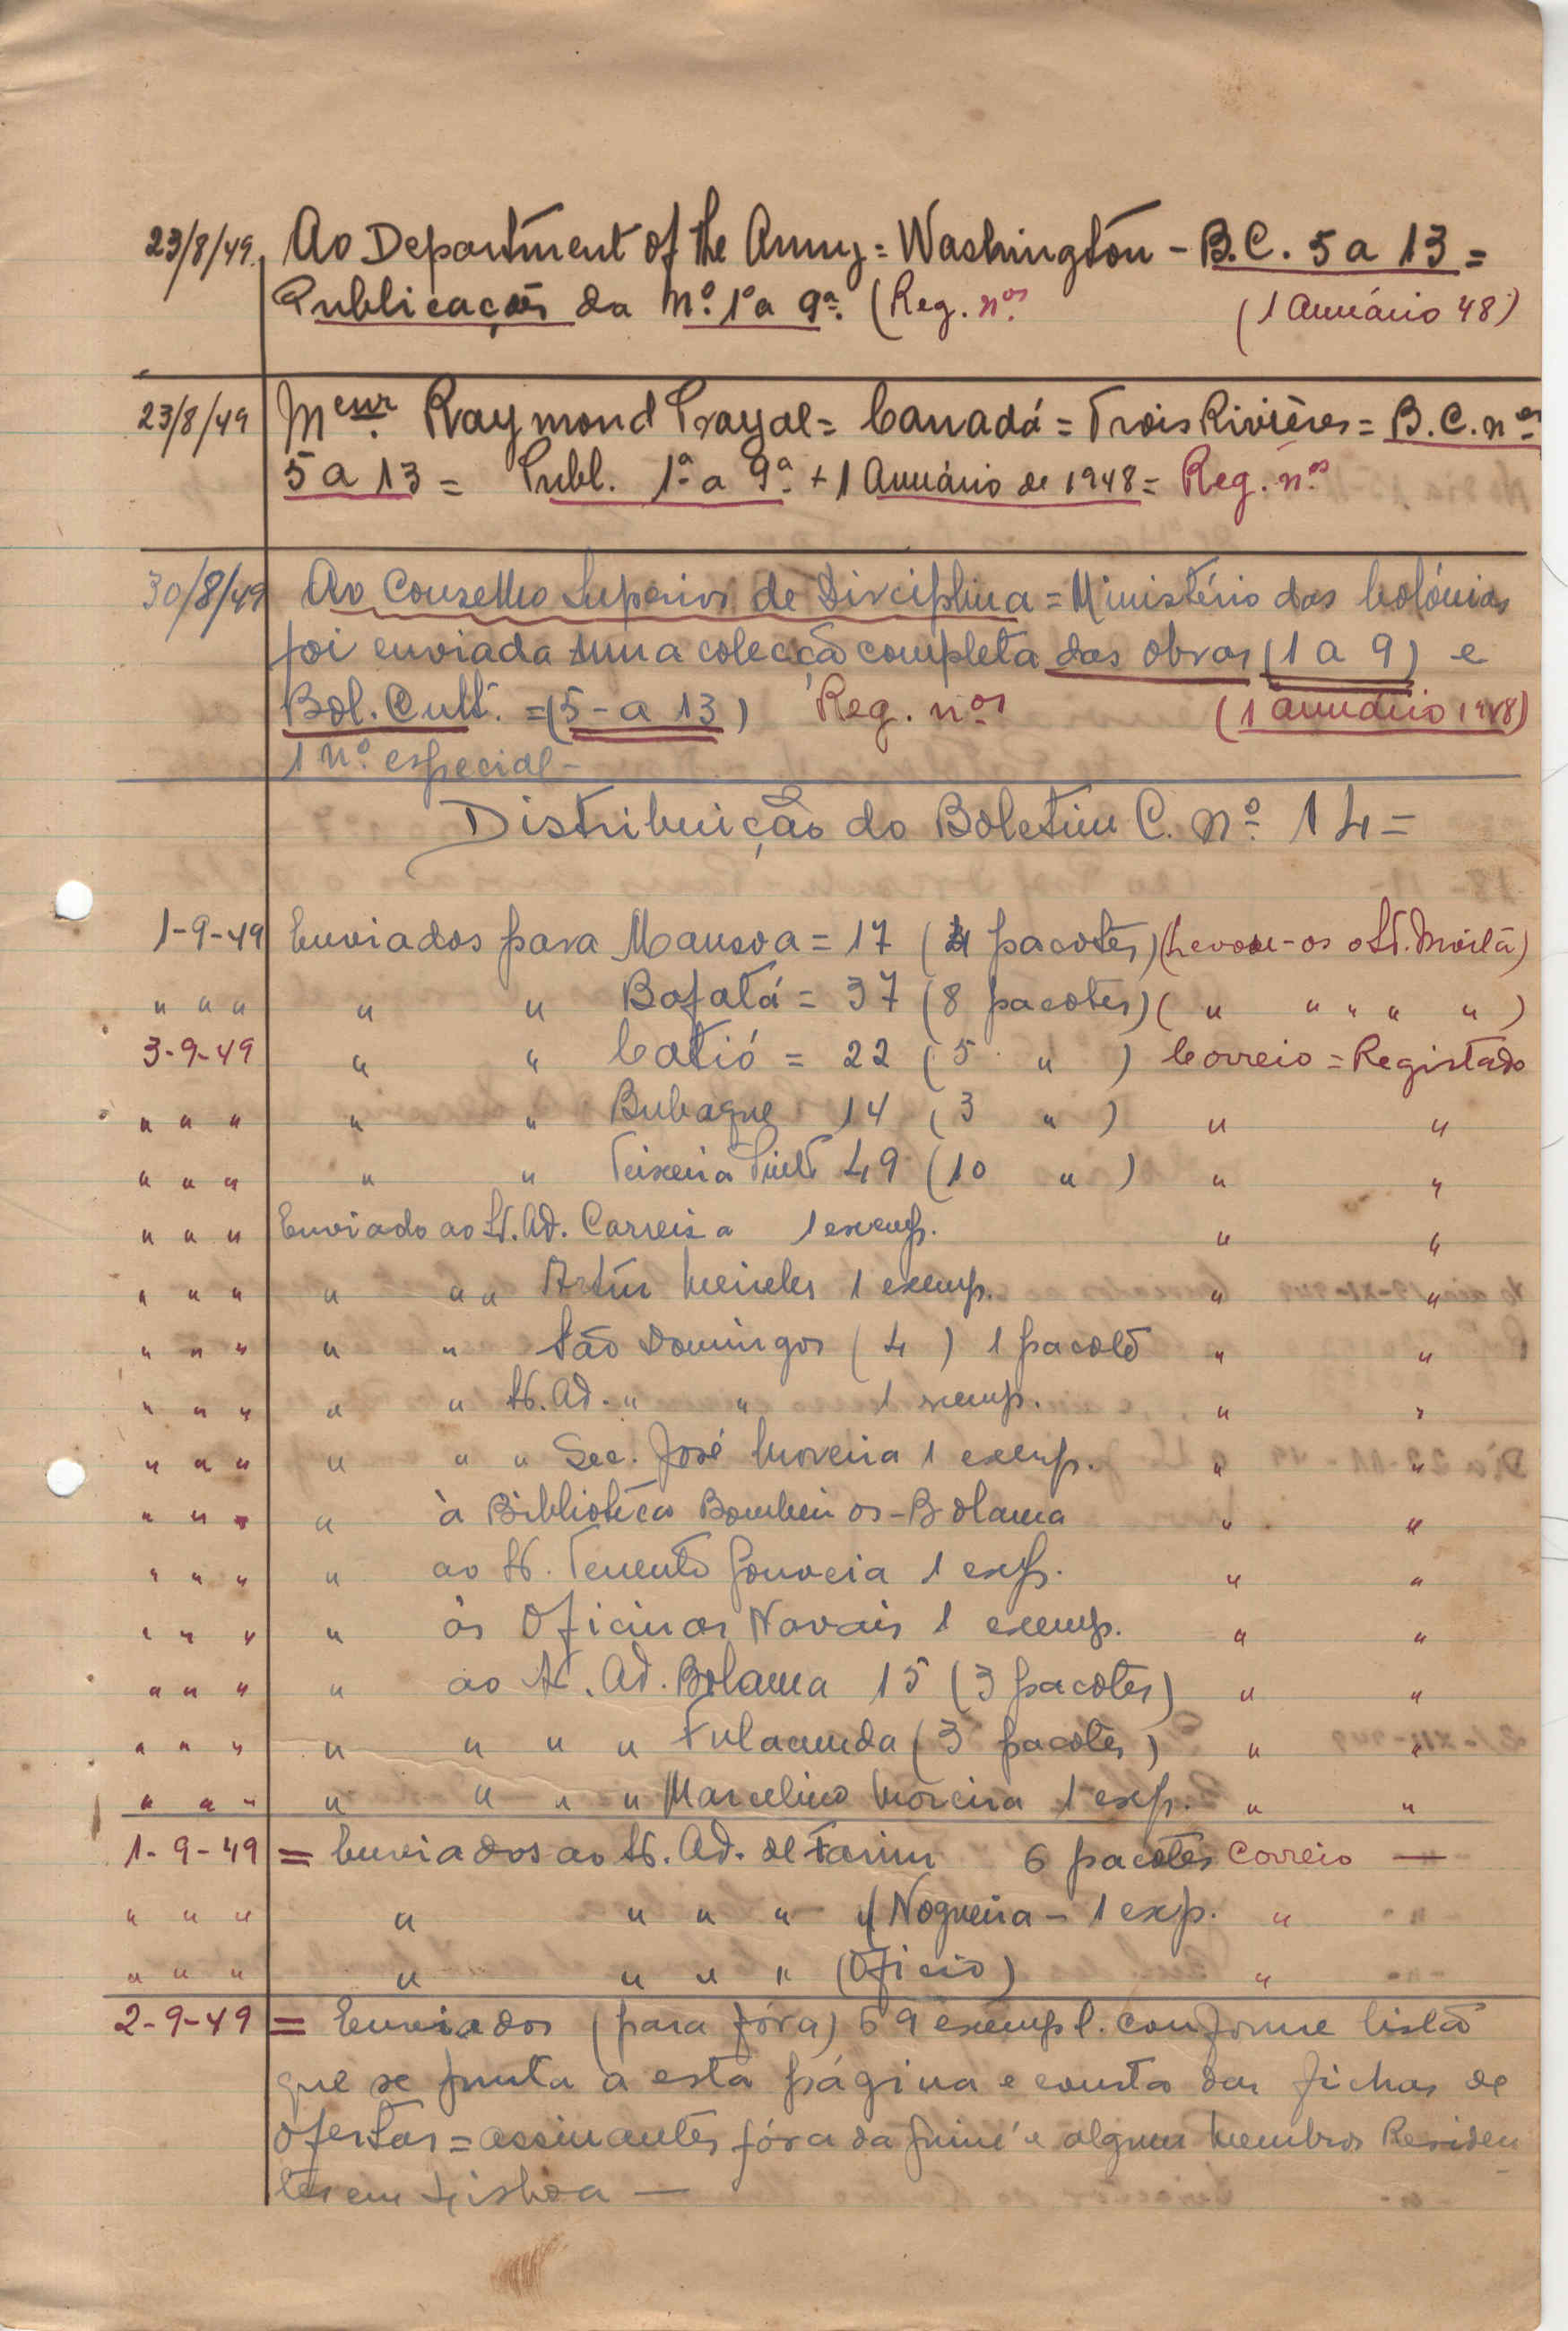 23/8/49. Ao Department of the Army = Washington - B.C. 5 a 13 =
Publicações da Nº 1º a 9ª. (Reg. nos (1 Anuário 48)
23/8/49 Meur. Raymond = Canadá = Trois Rivières = B.C. nos
5 a 13 = Publ. 1ª a 9ª + 1 Anuário de 1948 = Reg. nos
30/8/49 Ao Conselho Superior de Disciplina = Ministério das Colónias
foi enviada uma colecção completa das obras (1 a 9) e
Bol. Cult. = (5 - a 13) Reg. nos (1 anuário 1948)
1 nº especial -
Distribuição do Boletim C. nº 14 =
1-9-49 Enviados para Mansoa = 17 (4 pacotes) (Levou-os o Sr.
" " " " " Bafatá = 37 (8 pacotes) ( " " " " " )
3-9-49 " " Catió = 22 (5 " ) Correio = Registado
" " " " " Bubaque 14 (3 " ) " "
" " " " " Teixeira Pinto 49 (10 " ) " "
" " " Enviado ao Sr. Ad. Correia 1 exemp. " "
" " " " " " Artur Meireles 1 exemp. " "
" " " " " São Domingos ( 4 ) 1 pacote " "
" " " " " Sr. Ad. " " 1 exemp. " "
" " " " " " Sec. José Moreira 1 exemp. " "
" " " " à Biblioteca Bombeiros - Bolama " "
" " " " ao Sr. Tenente Gouveia 1 exp. " "
" " " " às Oficinas Navais 1 exemp. " "
" " " " ao Sr. Ad. Bolama 15 (3 pacotes) " "
" " " " " " " Fulacunda (3 pacotes) " "
" " " " " " " Marcelino Moreira 1 exp. " "
1-9-49 = Enviados ao Sr. Ad. de Farim 6 pacotes Correio —
" " " " " " " Nogueira - 1 exp. "
" " " " " " " (Oficio) "
2-9-49 = Enviados (para fóra) 69 exempl. conforme lista
que se junta a esta página e consta das fichas de
ofertas = assinantes fóra da Guiné e alguns membros Residen
tes em Lisboa —